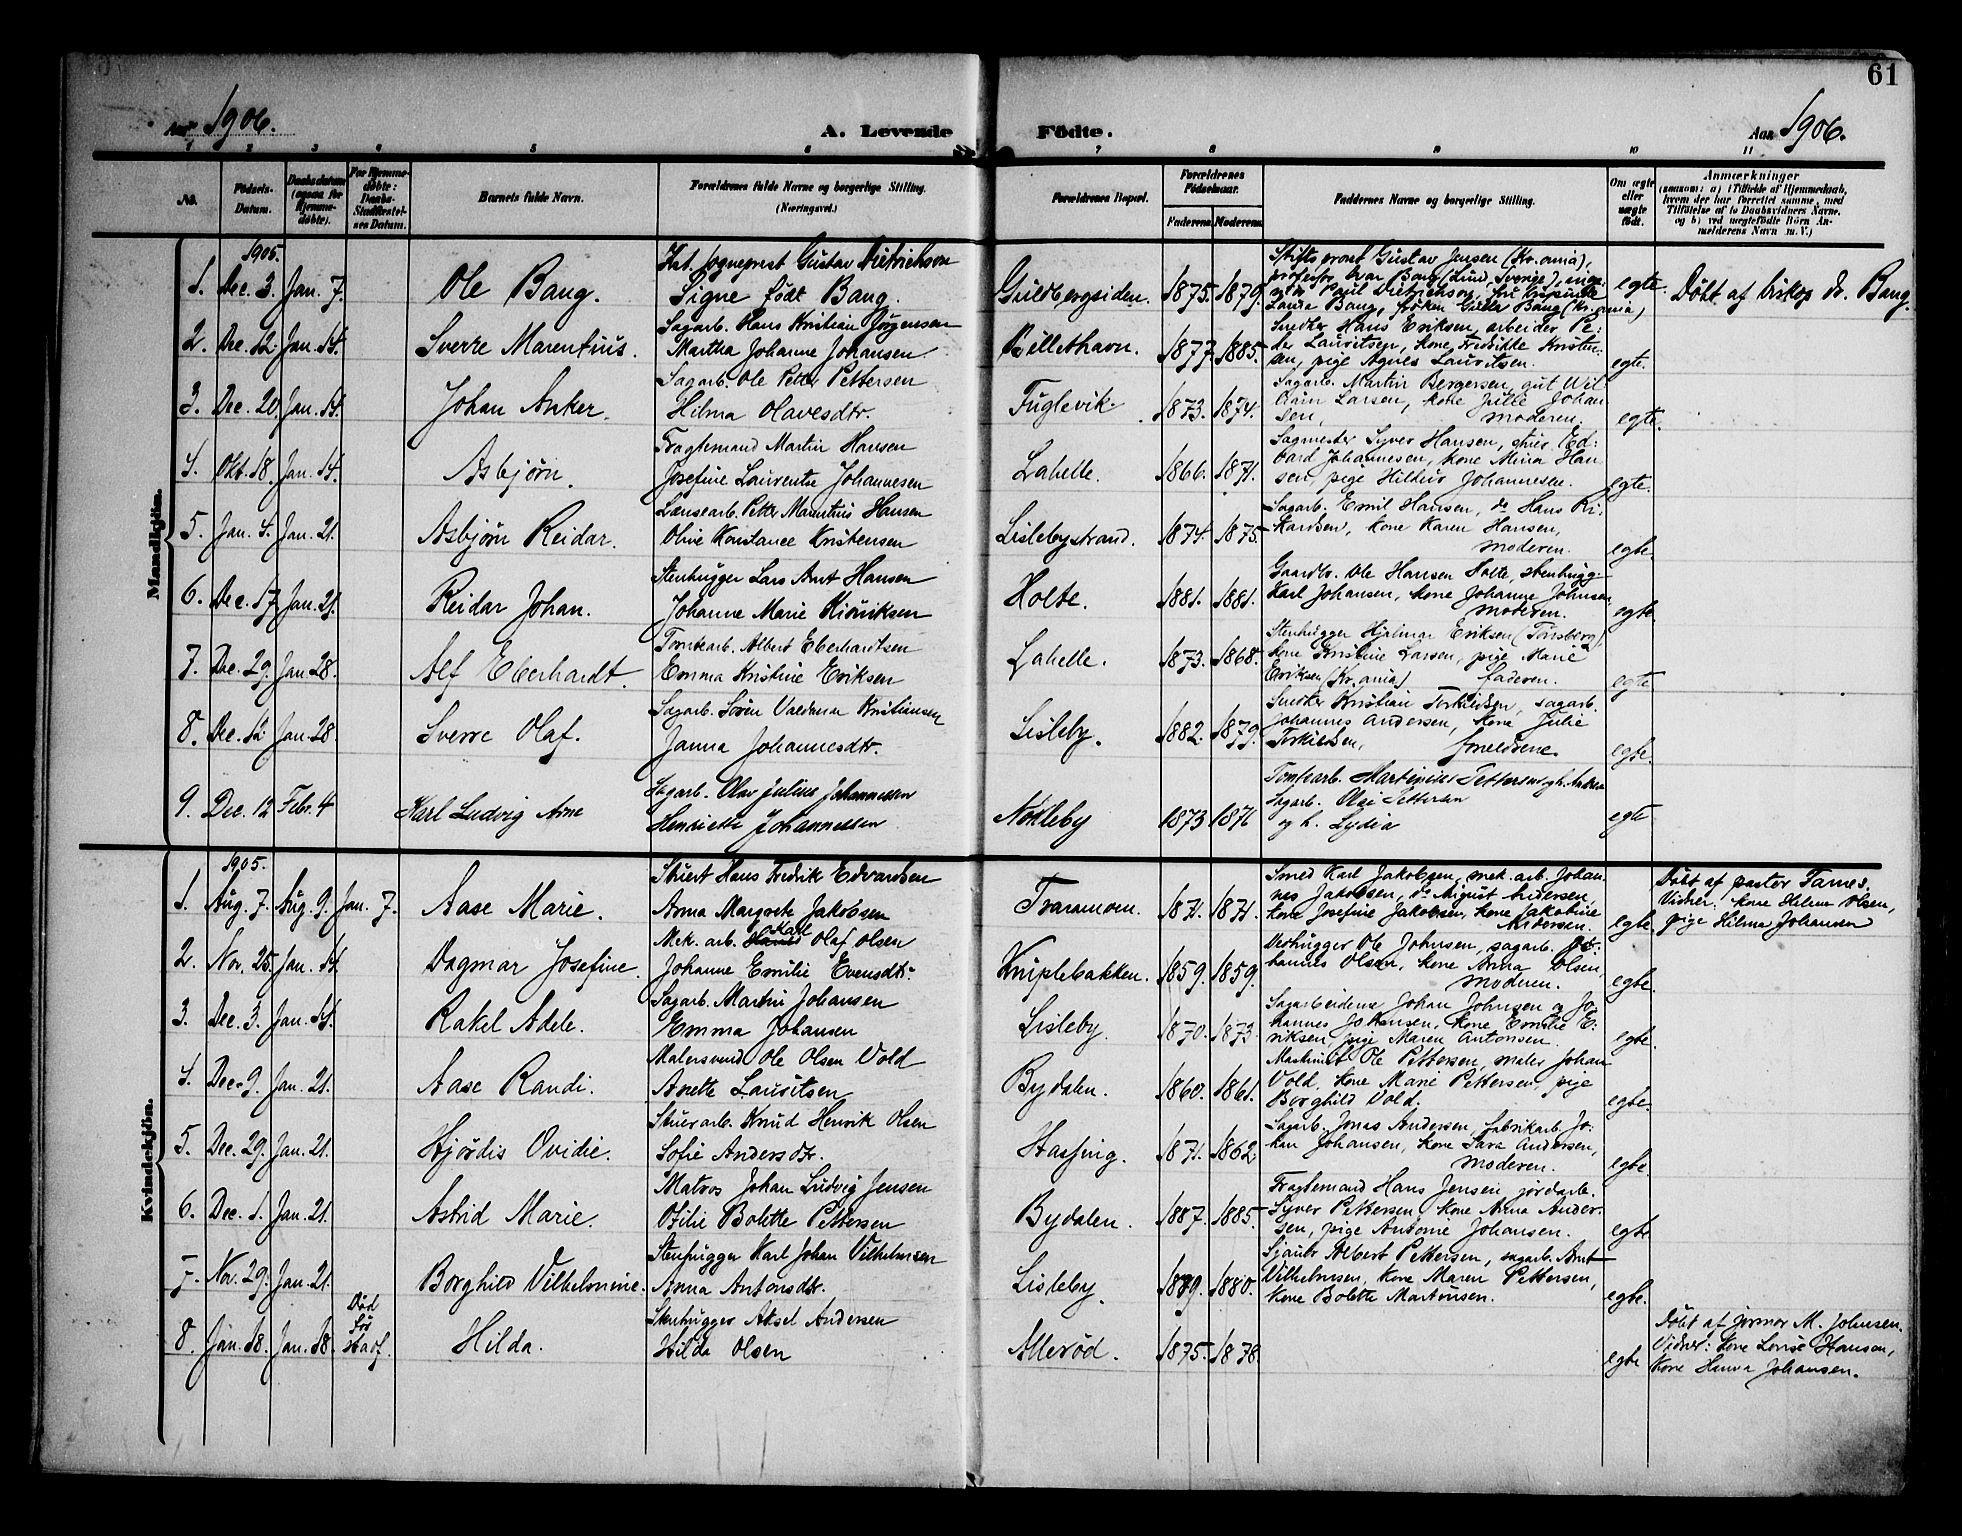 61
Aar 1906.
A. Levende Födte.
Aar 1906.
1 2 3 4 5 6 7 8 9 10 11
No.
Födsels-Datum.
Daabsdatum (ogsaa for Hjemmedöbte).
For Hjemmedöbte: Daabs-Stadfæstelses Datum.
Barnets fulde Navn.
Forældrenes fulde Navne og borgerlige Stilling. (Næringsvei.)
Forældrenes Bopæl.
Forældrenes Födselsaar.
Faderens. Moderens.
Faddernes Navne og borgerlige Stilling.
Om ægte eller uægte födt.
Anmærkninger
(saasom: a) i Tilfælde af Hjemmedaab, hvem der har forrettet samme, med Tilföielse af to Daabsvidners Navne, og b) ved uægtefödte Börn Anmelderens Navn m. V.)
Mandkjön.
1905.
1. Dec. 3. Jan. 7. Ole Bang.
Kst. sogneprest Gustav Dietrichson
Signe født Bang.
Guldbergsiden. 1875. 1879.
Stiftsprovst Gustav Jensen (Kr.ania),
professor Ivar Bang (Lund, Sverige), inge-
niør Paul Dietrichson, fru
Bang, frøken Gulda Bang (Kr.ania)
egte. Døbt af biskop dr. Bang.
2. Dec. 12. Jan. 14. Sverre Marentius.
Sagarb. Hans Kristian Jørgensen
Martha Johanne Johansen
Pillethavn. 1877. 1885.
Snedker Hans Eriksen, arbeider Pe-
der Lauritsen, kone Fredrikke Kristen-
sen, pige Agnes Lauritsen.
egte.
3. Dec. 20. Jan. 14. Johan Anker.
Sagarb. Ole Petter Pettersen
Hilma Olavesdtr.
Fuglevik. 1873. 1874.
Sagarb. Martin Bergersen, gut Wil-
Larsen, kone Jitte Johan-
sen, moderen.
egte.
4. Okt. 18. Jan. 14. Asbjørn.
Fragtemand Martin Hansen
Josefine Laurentse Johannesen
Lahelle. 1866. 1871.
Sagmester Syver Hansen, stuer Ed-
vard Johannesen, kone Mina Han-
sen, pige Hildur Johannesen.
egte.
5. Jan. 4. Jan. 21. Asbjørn Reidar.
Lænsearb. Petter Mauritius Hansen
Olive Konstance Kristensen
Lislebystrand. 1874. 1875.
Sagarb. Emil Hansen, do Hans Ri-
kardsen, kone Karen Hansen,
moderen.
egte.
6. Dec. 17. Jan. 21. Reidar Johan.
Stenhugger Lars Arnt Hansen
Johanne Marie Hinriksen
Holte. 1881. 1881.
Gaardbr. Ole Hansen Holte, stenhugg.
Karl Johansen, kone Johanne Johnsen,
moderen.
egte.
7. Dec. 29. Jan. 28. Alf Eberhardt.
Tomtearb. Albert Eberhardtsen
Emma Kristine Eriksen
Lahelle. 1873. 1868.
Stenhugger Hjalmar Eriksen (Tønsberg),
kone Kristine Larsen, pige Marie
Eriksen (Kr.ania) faderen.
egte.
8. Dec. 12. Jan. 28 Sverre Olaf.
Sagarb. Søren Valdemar Kristiansen
Janna Johannesdtr.
Lisleby. 1882. 1879.
Snedker Kristian Terkildsen, sagarb.
Johannes Andersen, kone Julie
Terkildsen, forældrene
egte.
9. Dec. 12 Febr. 4 Karl Ludvig Arne
Sagarb. Olav Julius Johannessen
Henriette Johannessen
Nøkleby 1873 1876
Tomtearb. Martinius Pettersen og h. Andrea
Sagarb. Olai Pettersen
og h. Lydia
egte
Kvindekjön.
1905.
1. Aug. 7. Aug. 9. Jan. 7. Aase Marie.
Stuert Hans Fredrik Edvardsen
Anna Margrete Jakobsen
Traramoen. 1871. 1871.
Smed Karl Jakobsen, mek. arb. Johan-
nes Jakobsen, do August Andersen,
kone Josefine Jakobsen, kone Jakobine
Andersen.
egte.
Døbt af pastor Tarnes.
Vidner: kone Helene Olsen,
pige Hilma Johansen
2. Nov. 25. Jan. 14. Dagmar Josefine.
Mek. arb. Karl Olaf Olsen
Johanne Emilie Evensdtr.
Kniplebakken. 1859. 1859.
Stenhugger Ole Johnsen, sagarb. Jo-
hannes Olsen, kone Anna Olsen,
moderen.
egte.
3. Dec. 3. Jan. 14. Rakel Adele.
Sagarb. Martin Johansen
Emma Johansen
Lisleby. 1870. 1873.
Sagarbeiderne Johan Johnsen og Jo-
hannes Johansen, kone Emilie E-
riksen, pige Maren Antonsen.
egte.
4. Dec. 9. Jan. 21. Aase Randi.
Malersvend Ole Olsen Vold
Anette Lauritsen
Bydalen. 1860. 1861.
Maskinist Ole Pettersen, maler Johan
Vold, kone Marie Pettersen, pige
Borghild Vold.
egte.
5. Dec. 29. Jan. 21. Hjørdis Ovidie.
Stuerarb. Knud Henrik Olsen
Sofie Andersdtr.
Hassing. 1871. 1862.
Sagarb. Jonas Andersen, fabrikarb. Jo-
han Johansen, kone Sara Andersen,
moderen.
egte
6. Dec. 1. Jan. 21. Astrid Marie.
Matros Johan Ludvig Jensen
Otilie Bolette Pettersen
Bydalen. 1887. 1885.
Fragtemand Hans Jensen, jordarb.
Syver Pettersen, kone Anna Ander-
sen, pige Antonie Johansen.
egte
7. Nov. 29. Jan. 21. Borghild Vilhelmine.
Stenhugger Karl Johan Vilhelmsen
Anna Antonsdtr.
Lisleby. 1879. 1880.
Sjauer Albert Pettersen, sagarb. Arnt
Vilhelmsen, kone Maren Pettersen,
kone Bolette Martinsen.
egte.
8. Jan. 18. Jan. 18. Død før stadf. Hilda.
Stenhugger Aksel Andersen
Hilda Olsen
Allerød. 1875. 1878.
egte
Døbt af jormor M. Johnsen.
Vidner: kone Lovise Hansen,
kone Hanna Johansen.